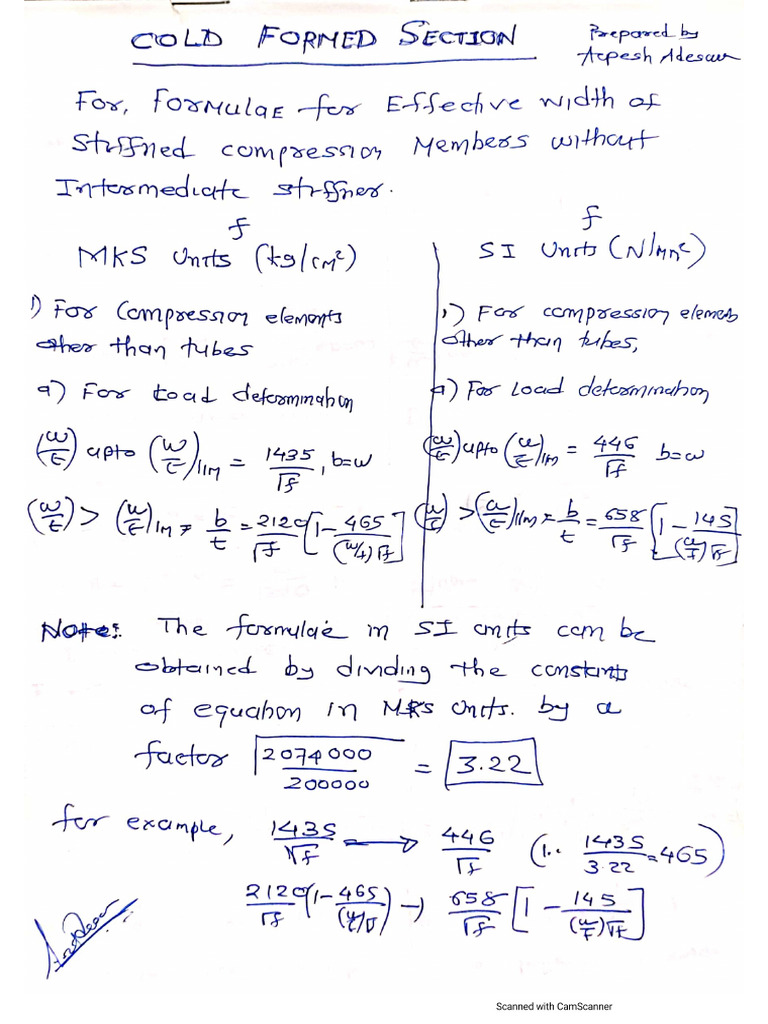 COLD FORMED SECTION
Prepared by
For, FORMULAE for Effective width of
Stiffned compression Members without
Intermediate stiffner.
f
MKS Units (kg/cm²)
1) For Compression elements
other than tubes
a) For Load determination
(w/t) upto (w/t)lim = 1435/√f, b=w
(w/t) > (w/t)lim, b/t = 2120/√f [1 - 465/(w/t)√f]
f
SI Units (N/mm²)
1) For compression elements
other than tubes,
a) For Load determination
(w/t) upto (w/t)lim = 446/√f b=w
(w/t) > (w/t)lim, b/t = 658/√f [1 - 145/(w/t)√f]
Note: The formulae in SI units can be
obtained by dividing the constants
of equation in MKS units. by a
factor √2074000/200000 = 3.22
for example, 1435/√f → 446/√f (i.. 1435/3.22 = 465)
2120/√f (1 - 465/(w/t)√) → 658/√f [1 - 145/(w/t)√f]
Scanned with CamScanner